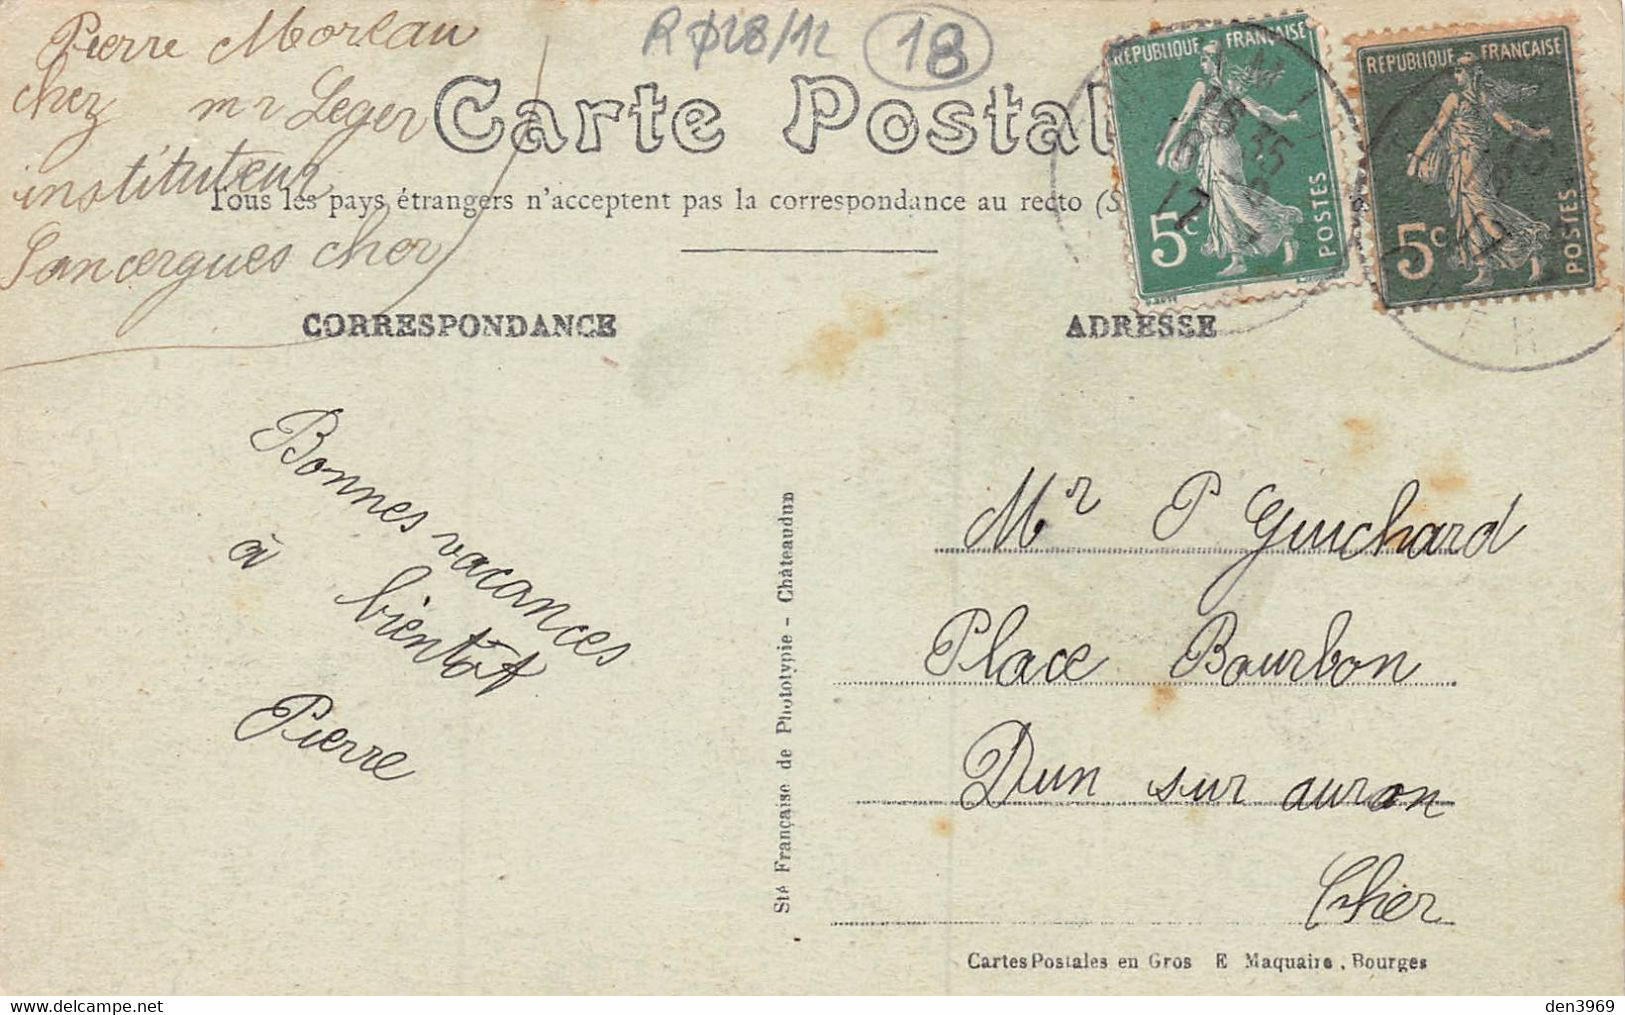 Pierre Moreau
chez mr Leger
instituteur
Sancergues cher
R 028/12
18
Carte Postal
Tous les pays étrangers n'acceptent pas la correspondance au recto (S
RÉPUBLIQUE FRANÇAISE
5c
POSTES
RÉPUBLIQUE FRANÇAISE
5c
POSTES
CORRESPONDANCE
ADRESSE
Bonnes vacances
à bientôt
Pierre
Sté Française de Phototypie - Châteaudun
Mr P Guichard
Place Bourbon
Dun sur auron
Cher
Cartes Postales en Gros E Maquaire, Bourges
den3969